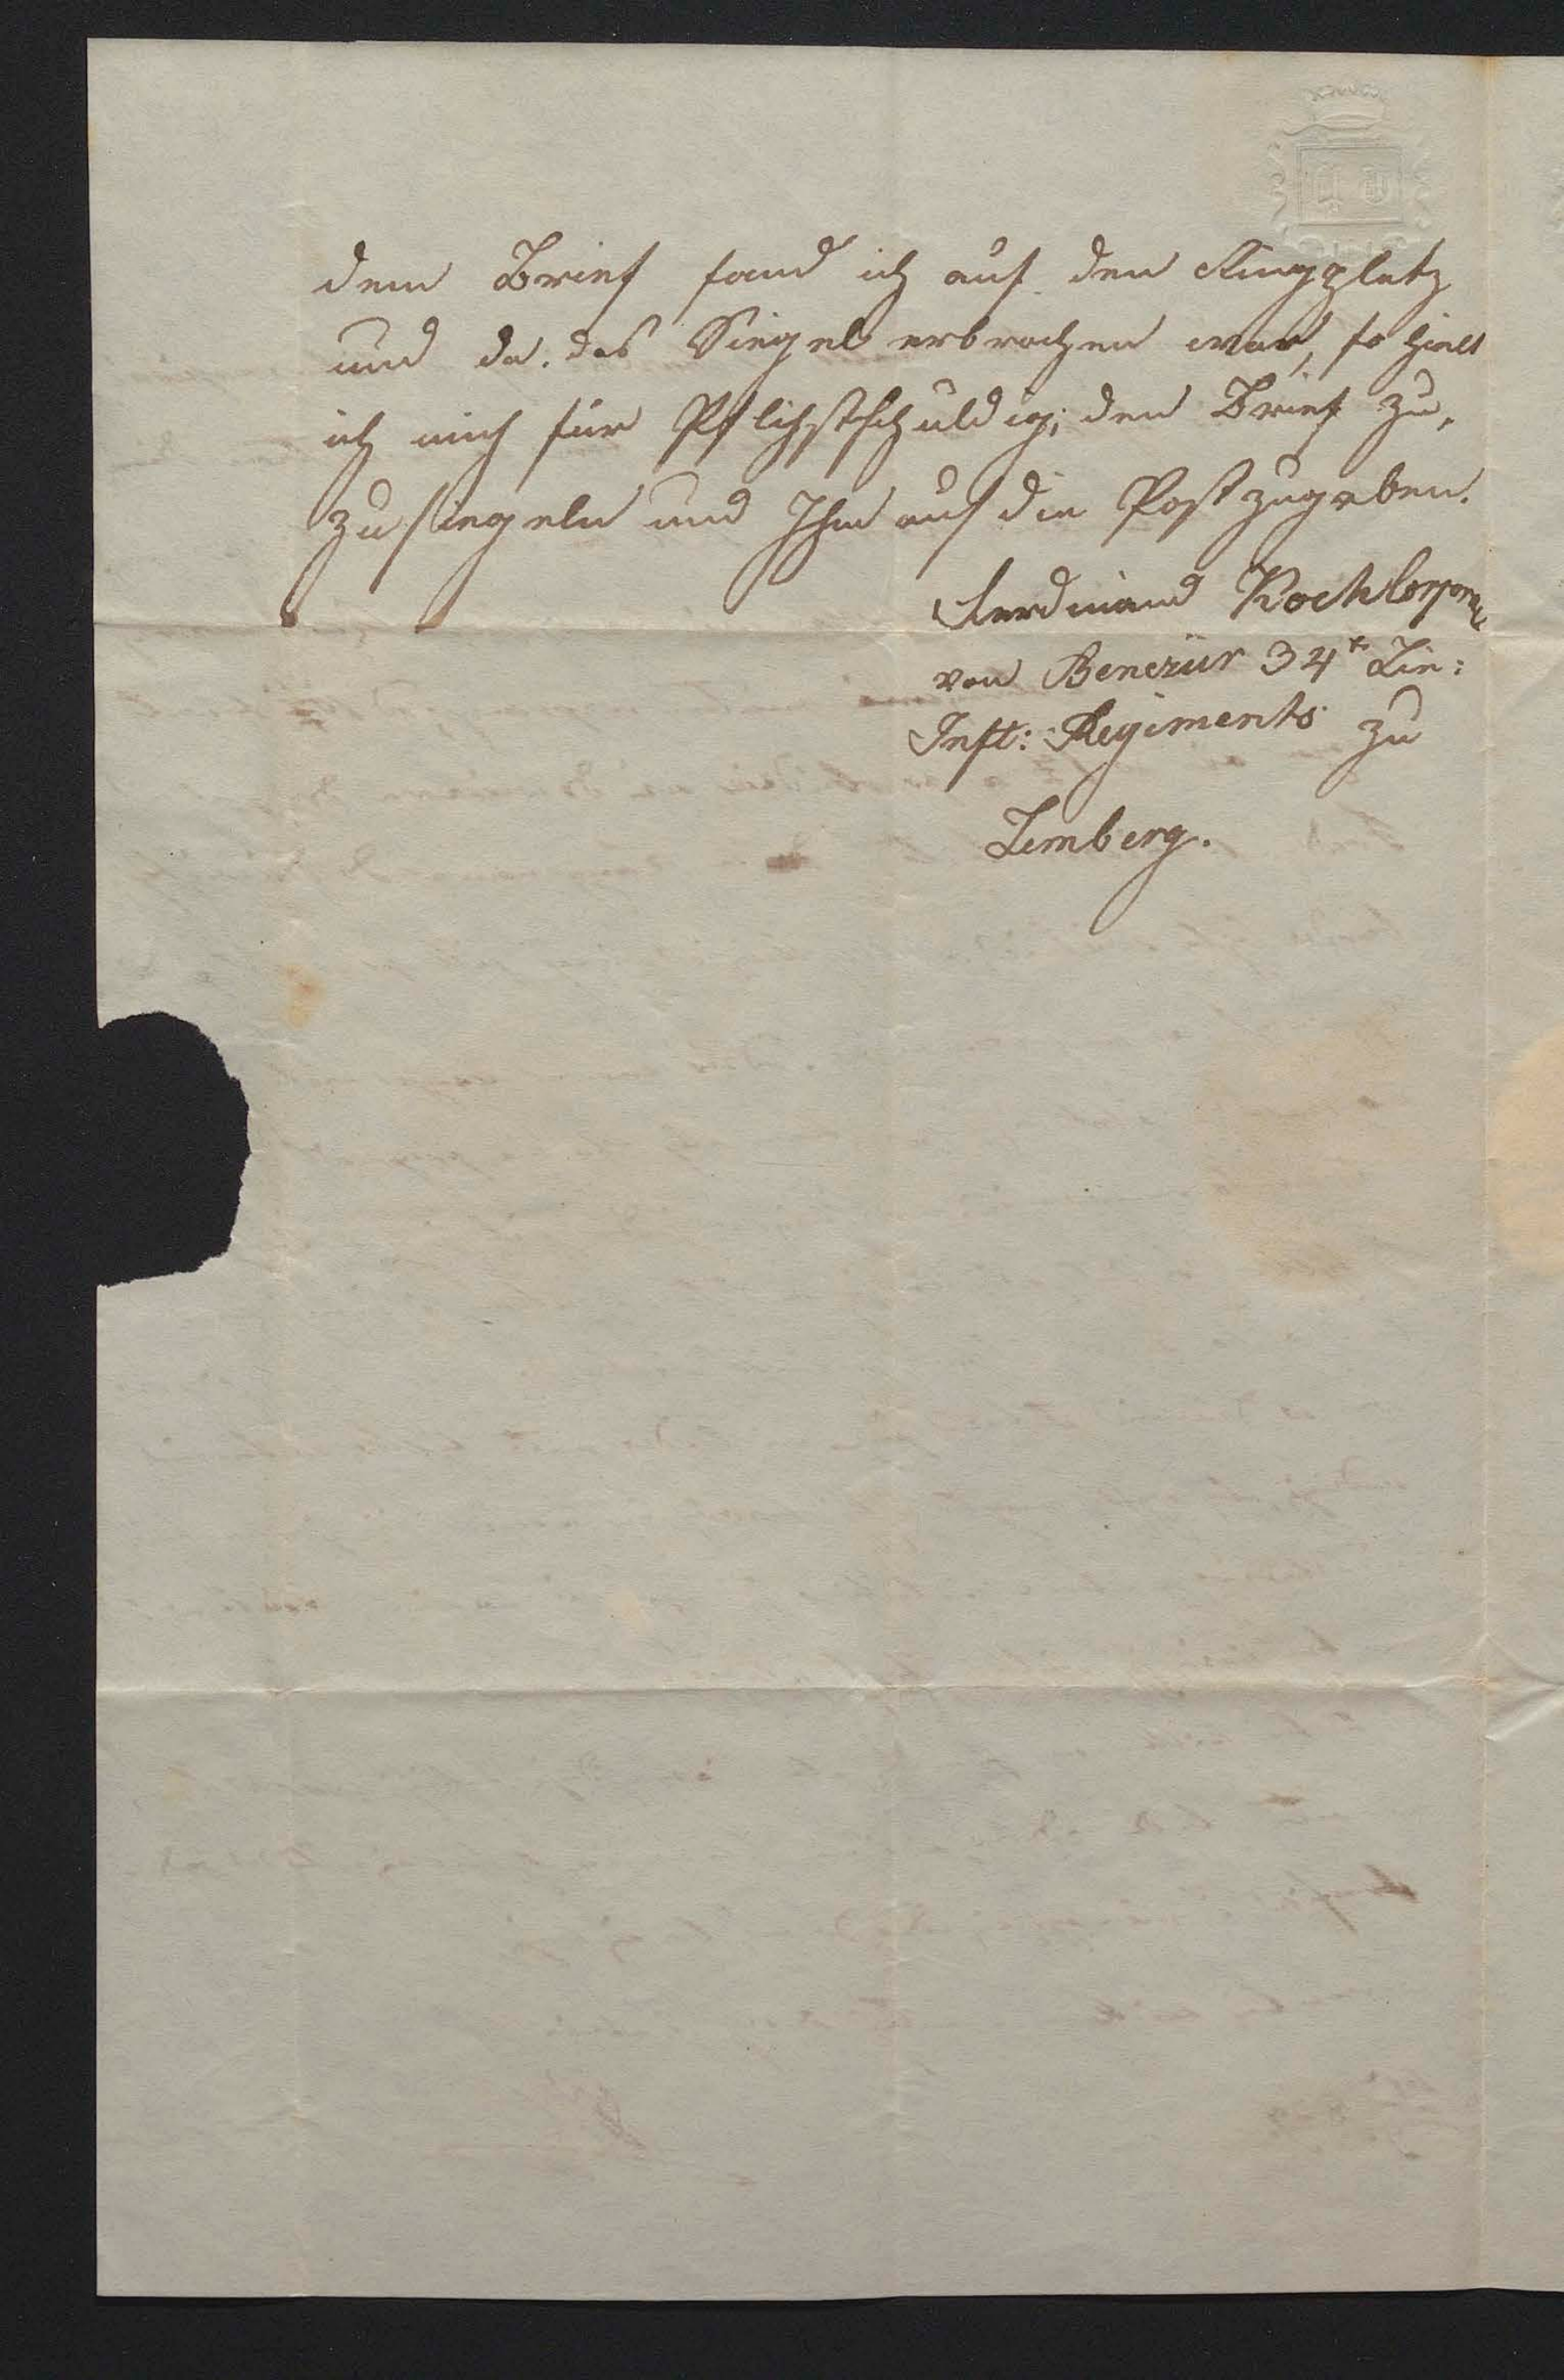 dem Brief fand ich auf den Ringplatz
und da das Siegel erbrochen war, so hielt
ich mich für Pflichtschuldig; den Brief zu,
zusiegeln und Ihm auf die Post zugeben.
Ferdinand Koch Corporal
von Benczúr 34t Lin:
Inft: Regiments zu
Lemberg.